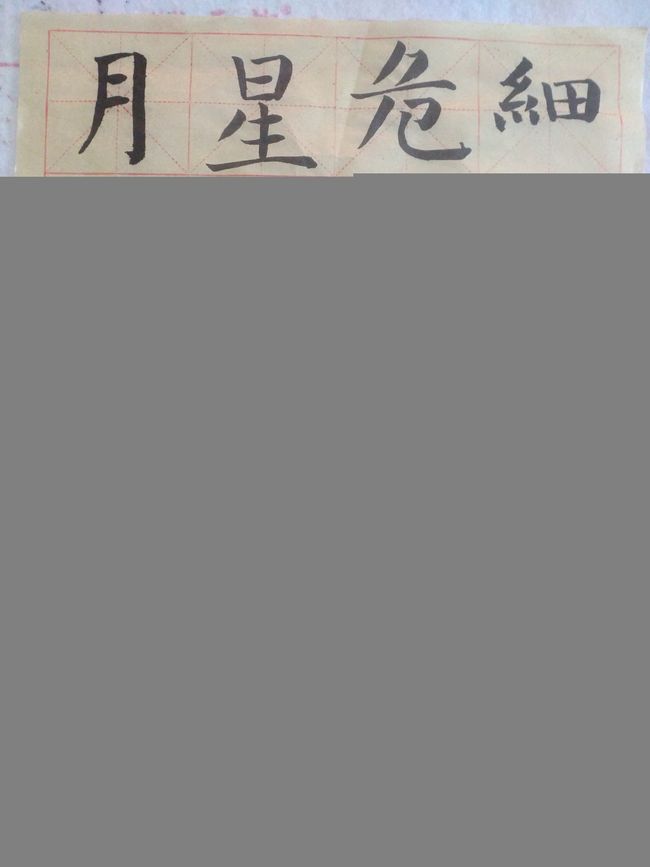 細
危
星
月